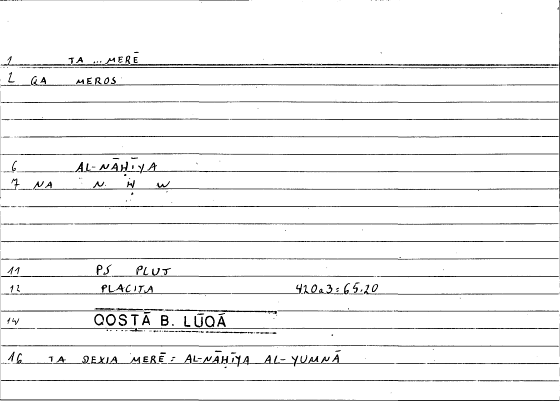 1 TA ... MERĒ
2 GA MEROS
6 AL-NĀḤIYA
7 NA N Ḥ W
11 PS PLUT
12 PLACITA 420a3=65.20
14 QOSTĀ B. LŪQĀ
16 TA DEXIA MERĒ = AL-NĀḤIYA AL-YUMNĀ